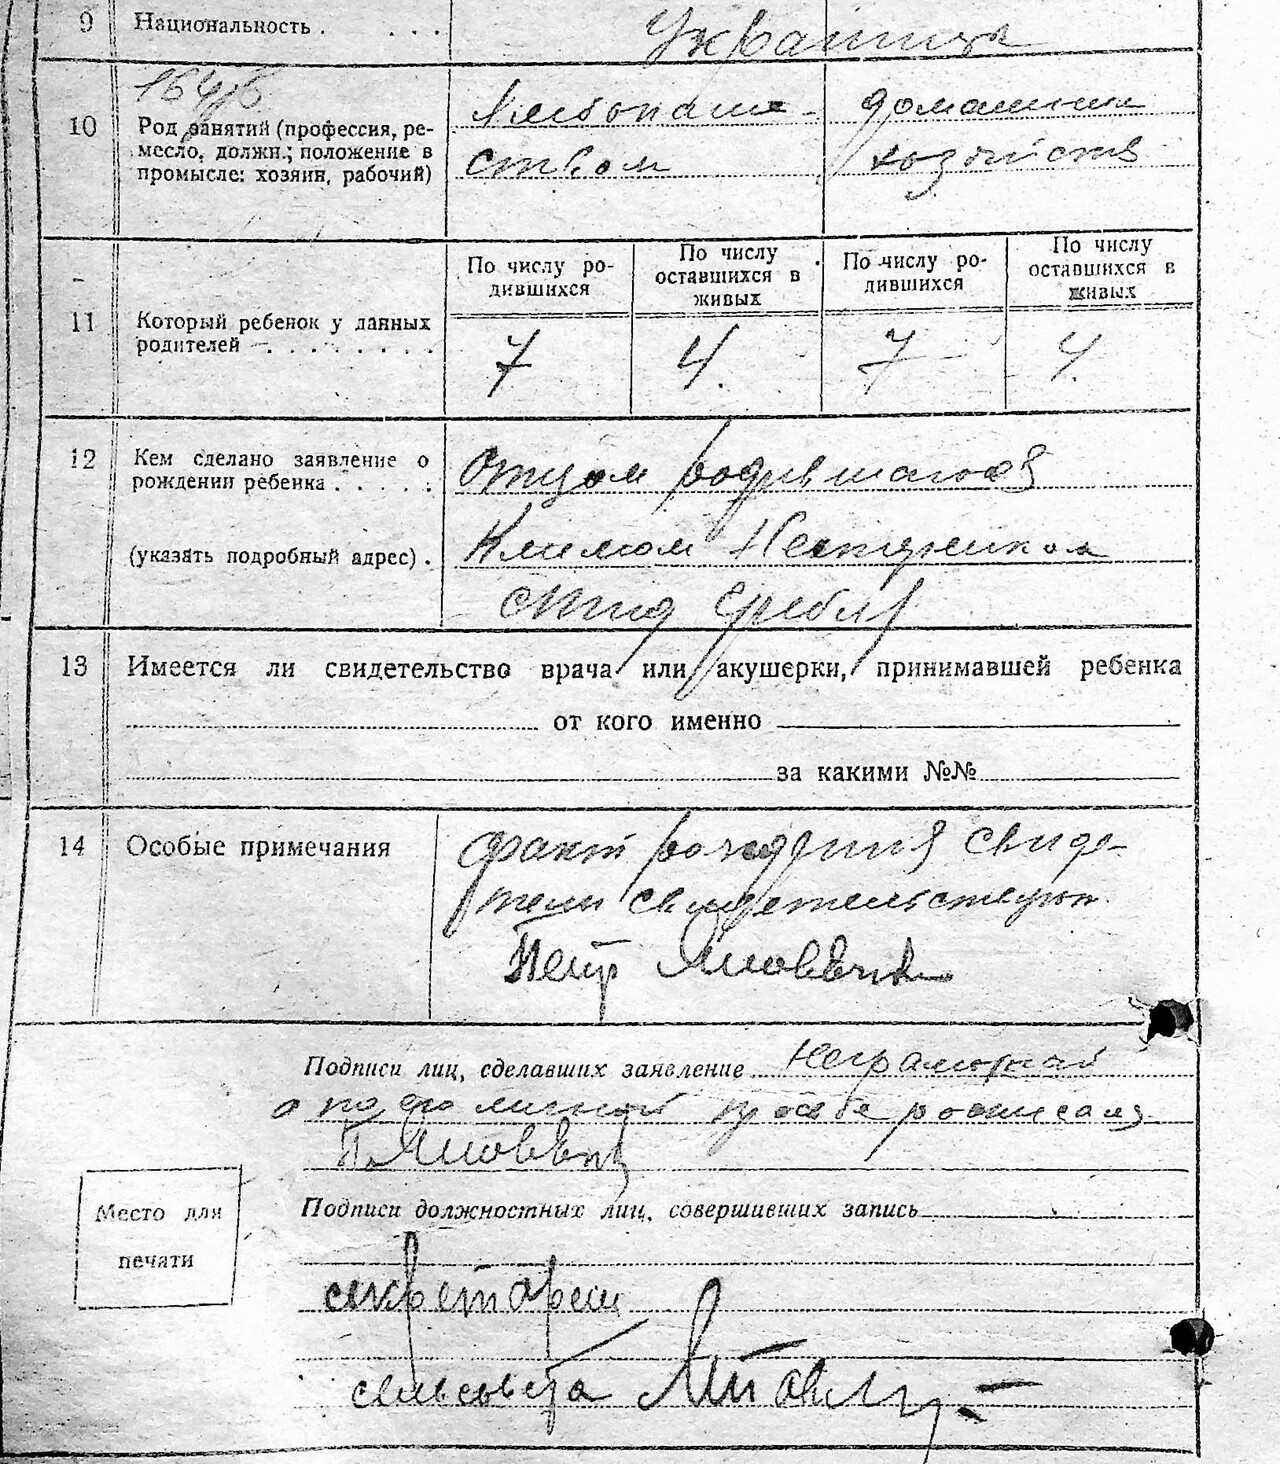 9 Национальность . . . . Украинцы
164/6
10 Род занятий (профессия, ре-
месло, должн.; положение в
промысле: хозяин, рабочий)
Хлебопаше-
ством
домашним
хозяйств
По числу ро-
дившихся
По числу
оставшихся в
живых
По числу ро-
дившихся
По числу
оставшихся в
живых
11 Который ребенок у данных
родителей — . . . . . . .
7 4. 7 4.
12 Кем сделано заявление о
рождении ребенка . . . . .
Отцом родившагося
(указать подробный адрес) .
Климом
Гребля
13 Имеется ли свидетельство врача или акушерки, принимавшей ребенка
от кого именно
за какими №№
14 Особые примечания
факт рождения свиде-
тели свидетельствуют
Петр
Подписи лиц, сделавших заявление Неграмотный
а по его личной просьбе росписался
П.
Место для
печати
Подписи должностных лиц, совершивших запись
секретарь
сельсовета